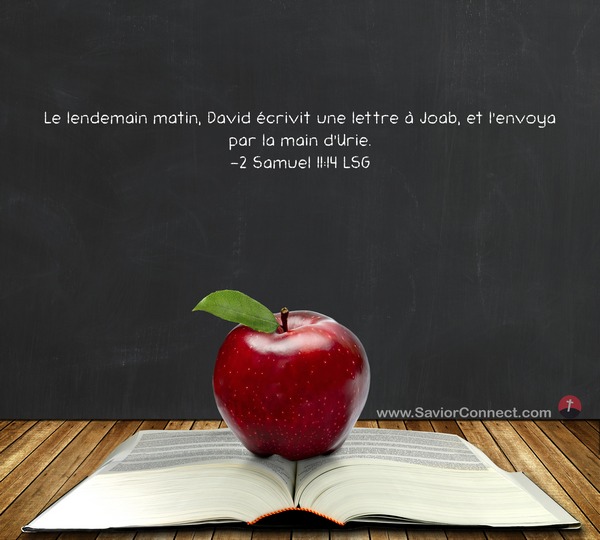 Le lendemain matin, David écrivit une lettre à Joab, et l'envoya
par la main d'Urie.
-2 Samuel 11:14 LSG
www.SaviorConnect.com